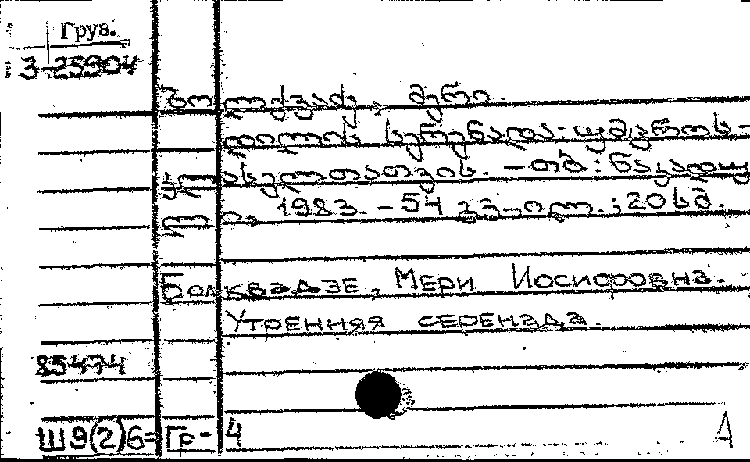 Груз.
3-25904
ბოლქვაძე, მერი.
დილის სერენადა: უმცროს-
კლასელთათვის. – თბ: ნაკადუ-
ლი, 1983. – 54 გვ., ილ.; 20 სმ.
Болквадзе, Мери Иосифовна.
Утренняя серенада.
85474
Ш9(2)6=Гр-4
А